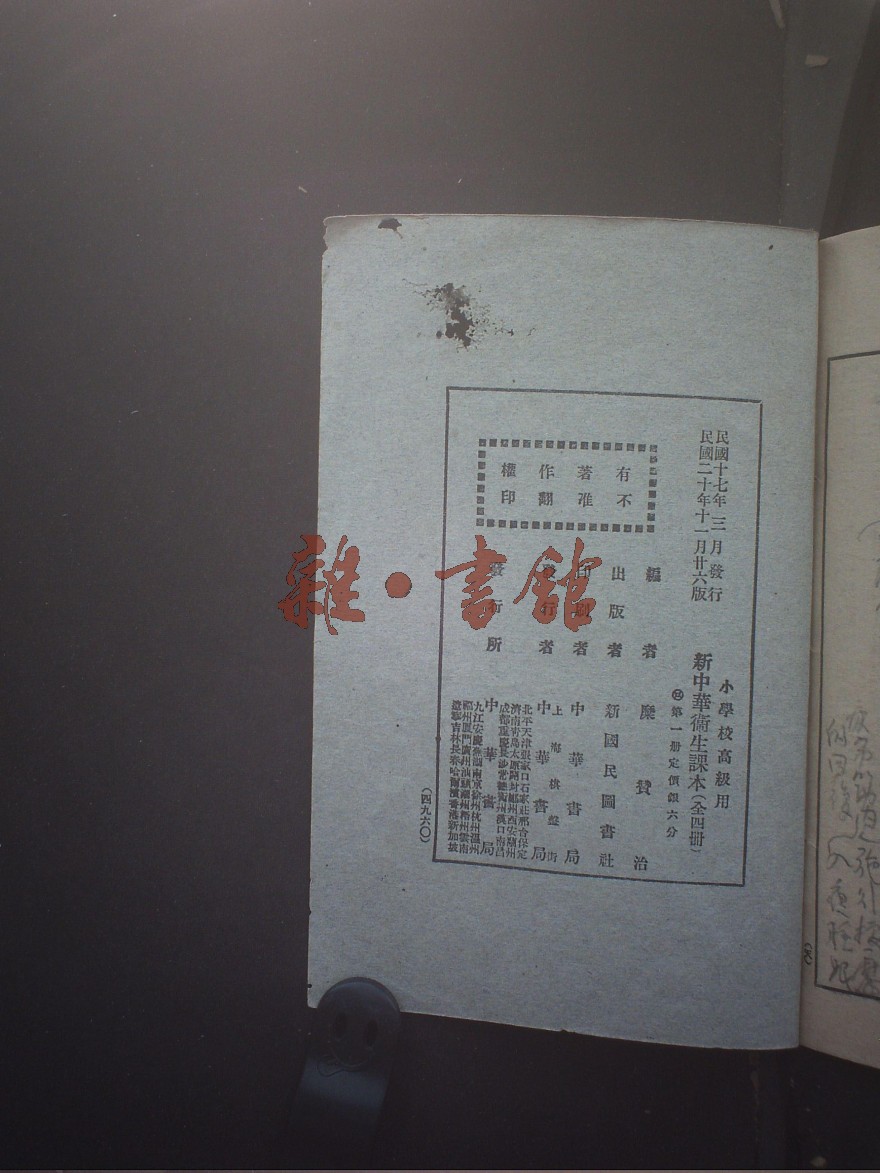 民國十七年三月發行
民國二十年十一月廿六版
小學校高級用
新中華衞生課本(全四冊)
第一冊定價銀六分
有不
著准
作翻
權印
編者 糜贊治
出版者 新國民圖書社
印刷者 中華書局
發行者 上海棋盤街 中華書局
發行所 中華書局
北平天津張家口石家莊邢台保定
濟南青島太原開封鄭州西安蘭州
成都重慶長沙常德衡州漢口南昌
九江安慶蕪湖南京徐州杭州溫州
福州厦門廣州汕頭潮州梧州雲南
遼寧吉林長春哈爾濱香港新加坡
(四九六〇)
雜·書館